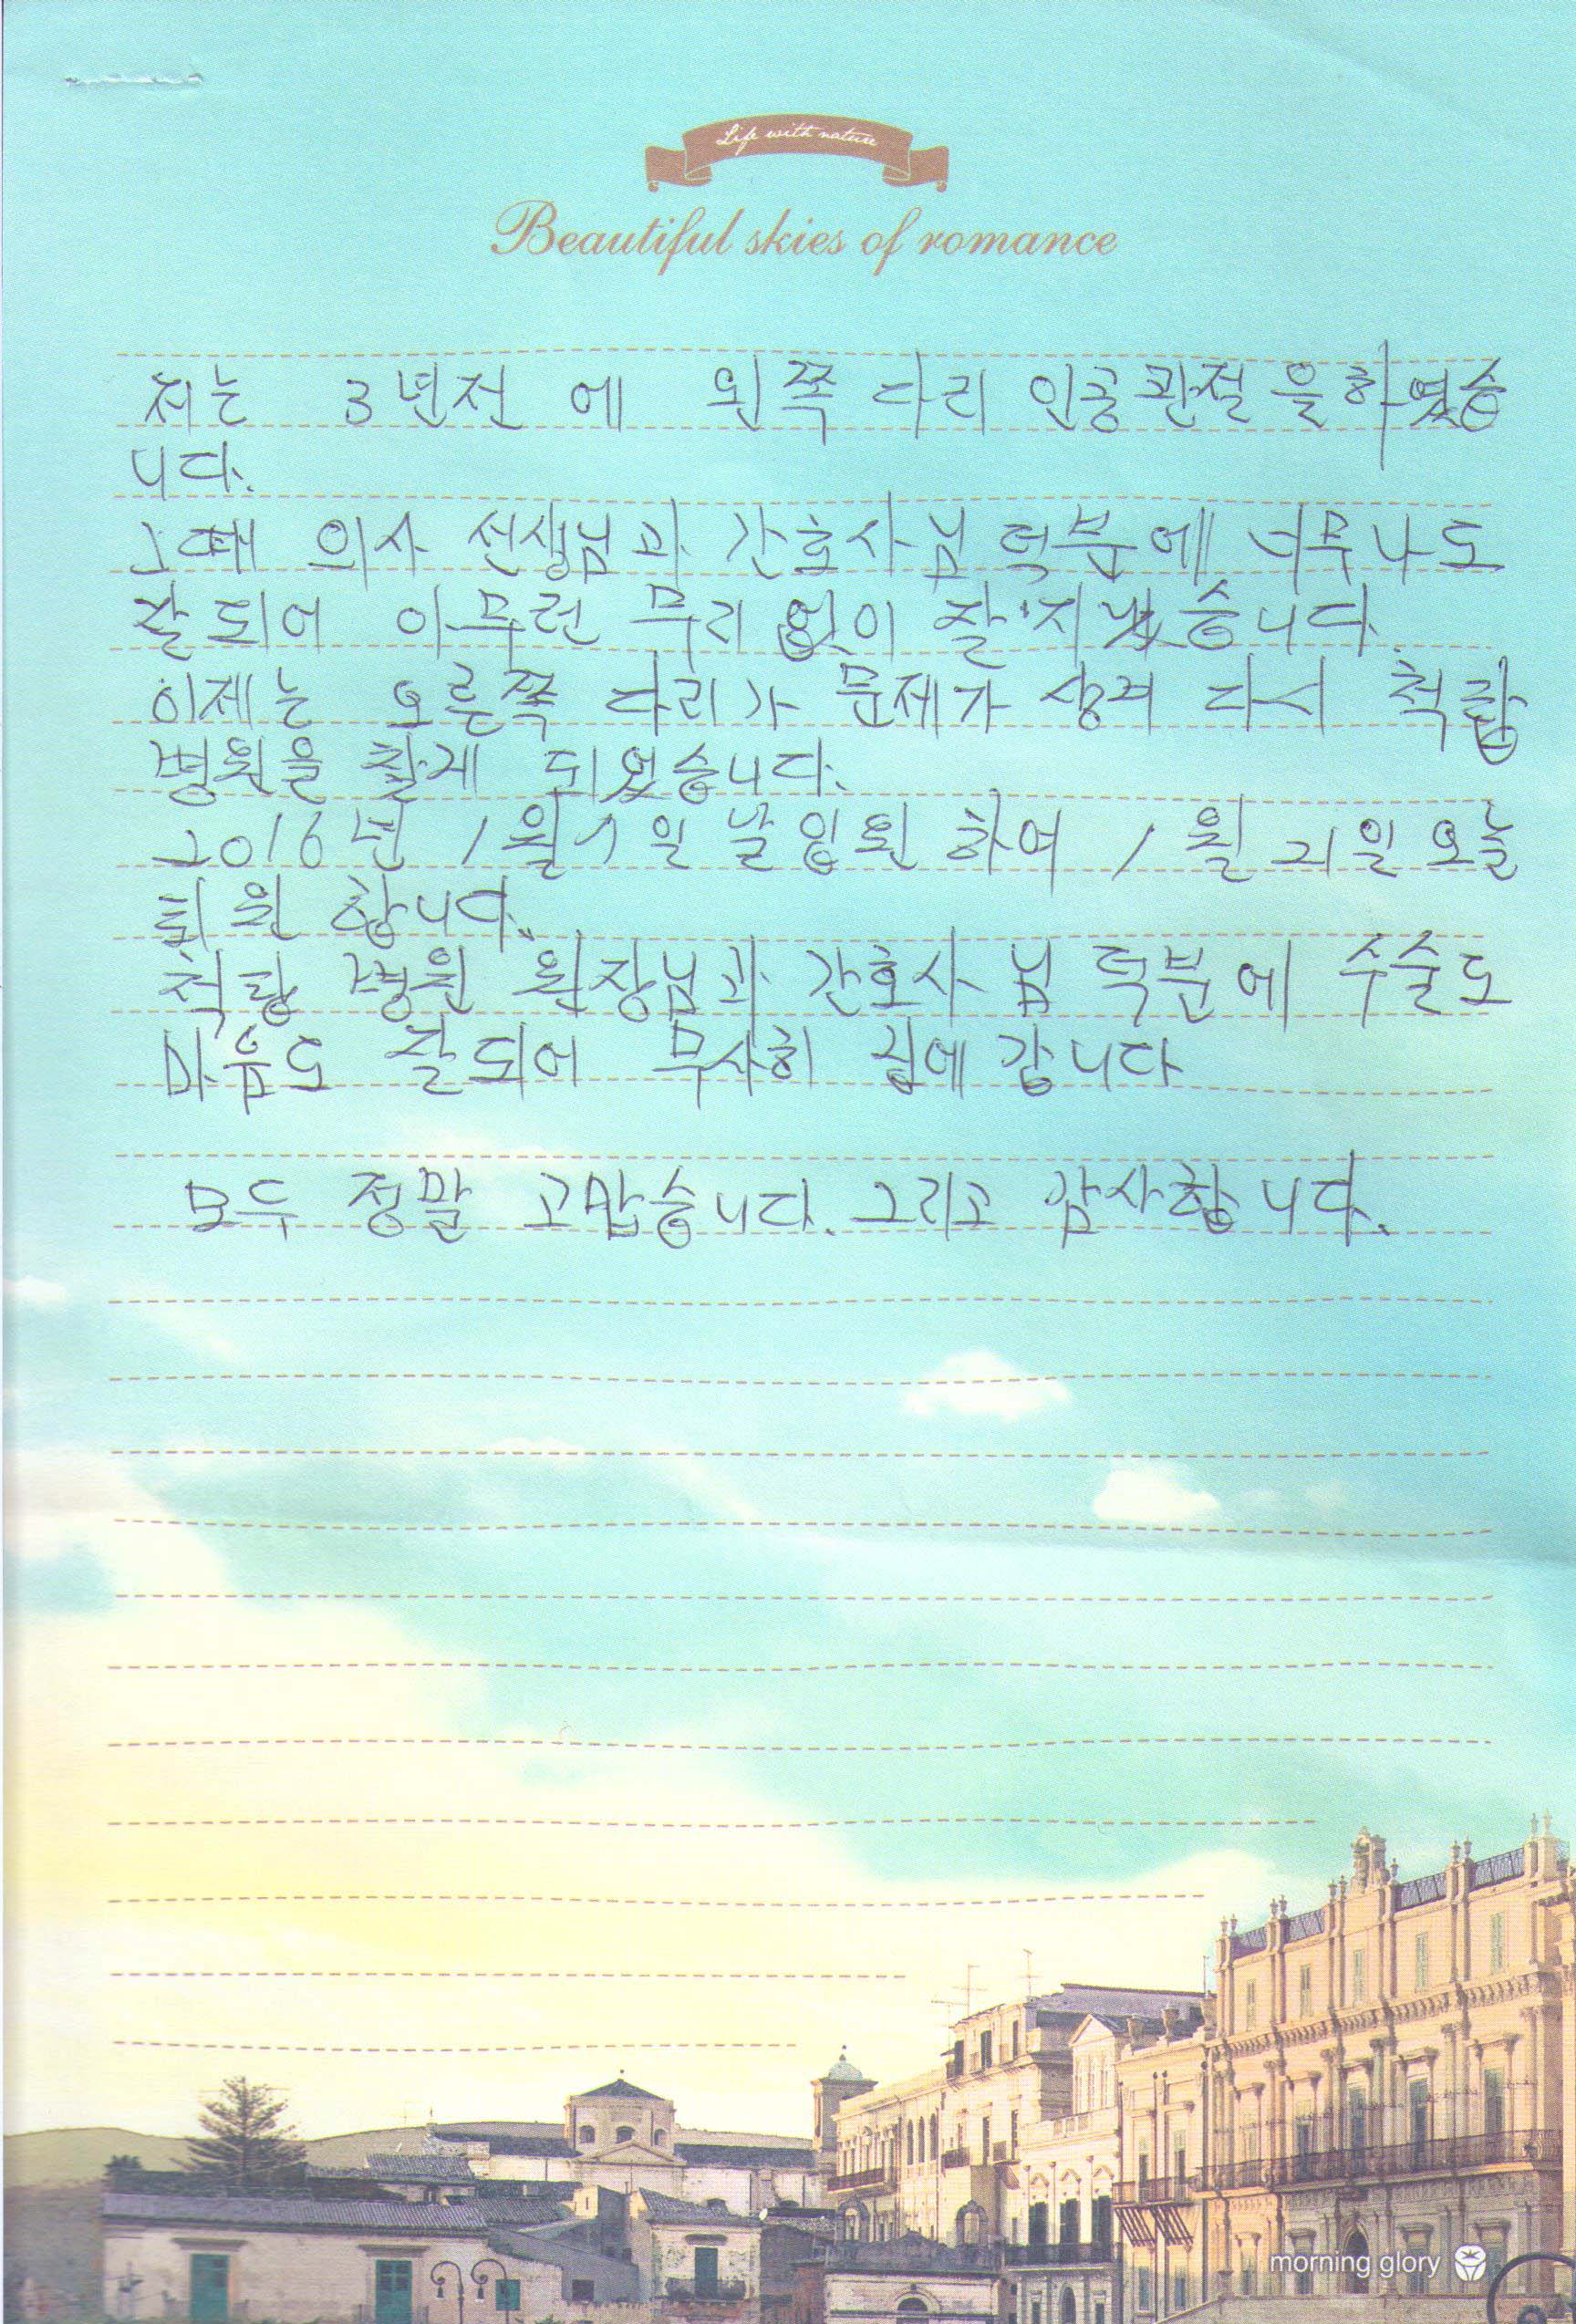 Life with nature
Beautiful skies of romance
저는 3년전 에 왼쪽 다리 인공관절을하였습
니다.
그때 의사 선생님과 간호사님 덕분에 너무나도
잘되어 아무런 무리 없이 잘 지냈습니다.
이제는 오른쪽 다리가 문제가 생겨 다시 척탑
병원을 찾게 되었습니다.
2016년 1월 7일 날 입원 하여 1월 21일 오늘
퇴원 합니다.
척탑 병원 원장님과 간호사님 덕분에 수술도
마음도 잘되어 무사히 집에 갑니다
모두 정말 고맙습니다. 그리고 감사합니다.
morning glory